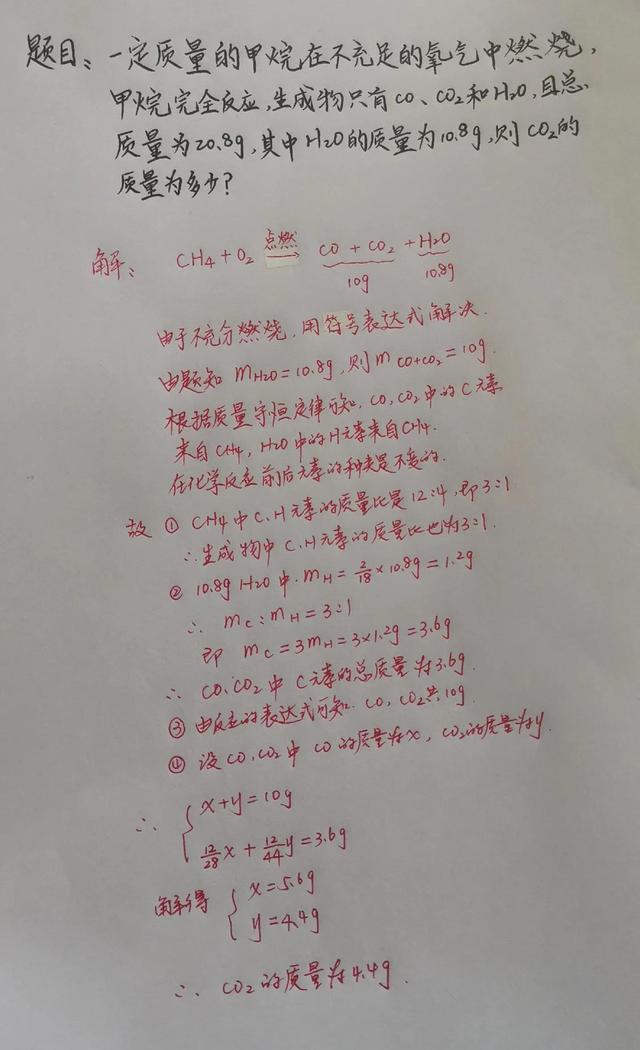 题目:一定质量的甲烷在不充足的氧气中燃烧,
甲烷完全反应,生成物只有CO、CO2和H2O,且总
质量为20.8g,其中H2O的质量为10.8g,则CO2的
质量为多少?
解: CH4+O2 点燃→ CO + CO2 + H2O
10g 10.8g
由于不充分燃烧,用符号表达式解决.
由题知 mH2O=10.8g,则m CO+CO2=10g.
根据质量守恒定律可知,CO,CO2中的C元素
来自CH4,H2O中的H元素来自CH4.
在化学反应前后元素的种类是不变的.
故 ① CH4中C.H元素的质量比是12:4,即3:1
∴生成物中C.H元素的质量比也为3:1.
② 10.8g H2O中.mH=2/18×10.8g=1.2g
∴ mC:mH=3:1
即 mC=3mH=3×1.2g=3.6g
∴ CO.CO2中C元素的总质量为3.6g.
③ 由反应的表达式可知.CO,CO2共10g
④ 设CO.CO2中CO的质量为x,CO2的质量为y.
∴ { x+y=10g
12/28x+12/44y=3.6g
解得 { x=5.6g
y=4.4g
∴ CO2的质量为4.4g.